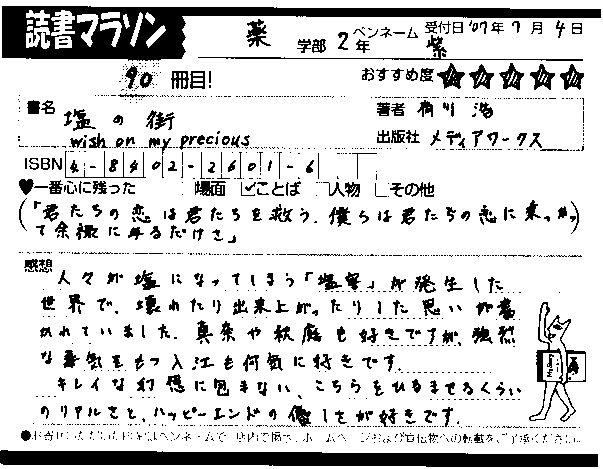 読書マラソン 薬 学部 2年 ペンネーム 紫 受付日 '07年 7月 4日
90 冊目! おすすめ度 ★★★★★
書名 塩の街 wish on my precious
著者 有川 浩
出版社 メディアワークス
ISBN 4-8402-2601-6
♥一番心に残った □場面 ☑ことば □人物 □その他
(「君たちの恋は君たちを救う。僕らは君たちの恋に乗っかっ
て余禄に与るだけさ」)
感想
人々が塩になってしまう「塩害」が発生した
世界で、壊れたり出来上がったりした思いが書
かれていました。真奈や秋庭も好きですが、強烈
な毒気をもつ入江も何気に好きです。
キレイな幻想に包まない、こちらをひるませるくらい
のリアルさと、ハッピーエンドの優しさが好きです。
●お寄せいただいたお名はペンネームで、店内で掲示、ホームページおよび宣伝物への転載をご了承ください。